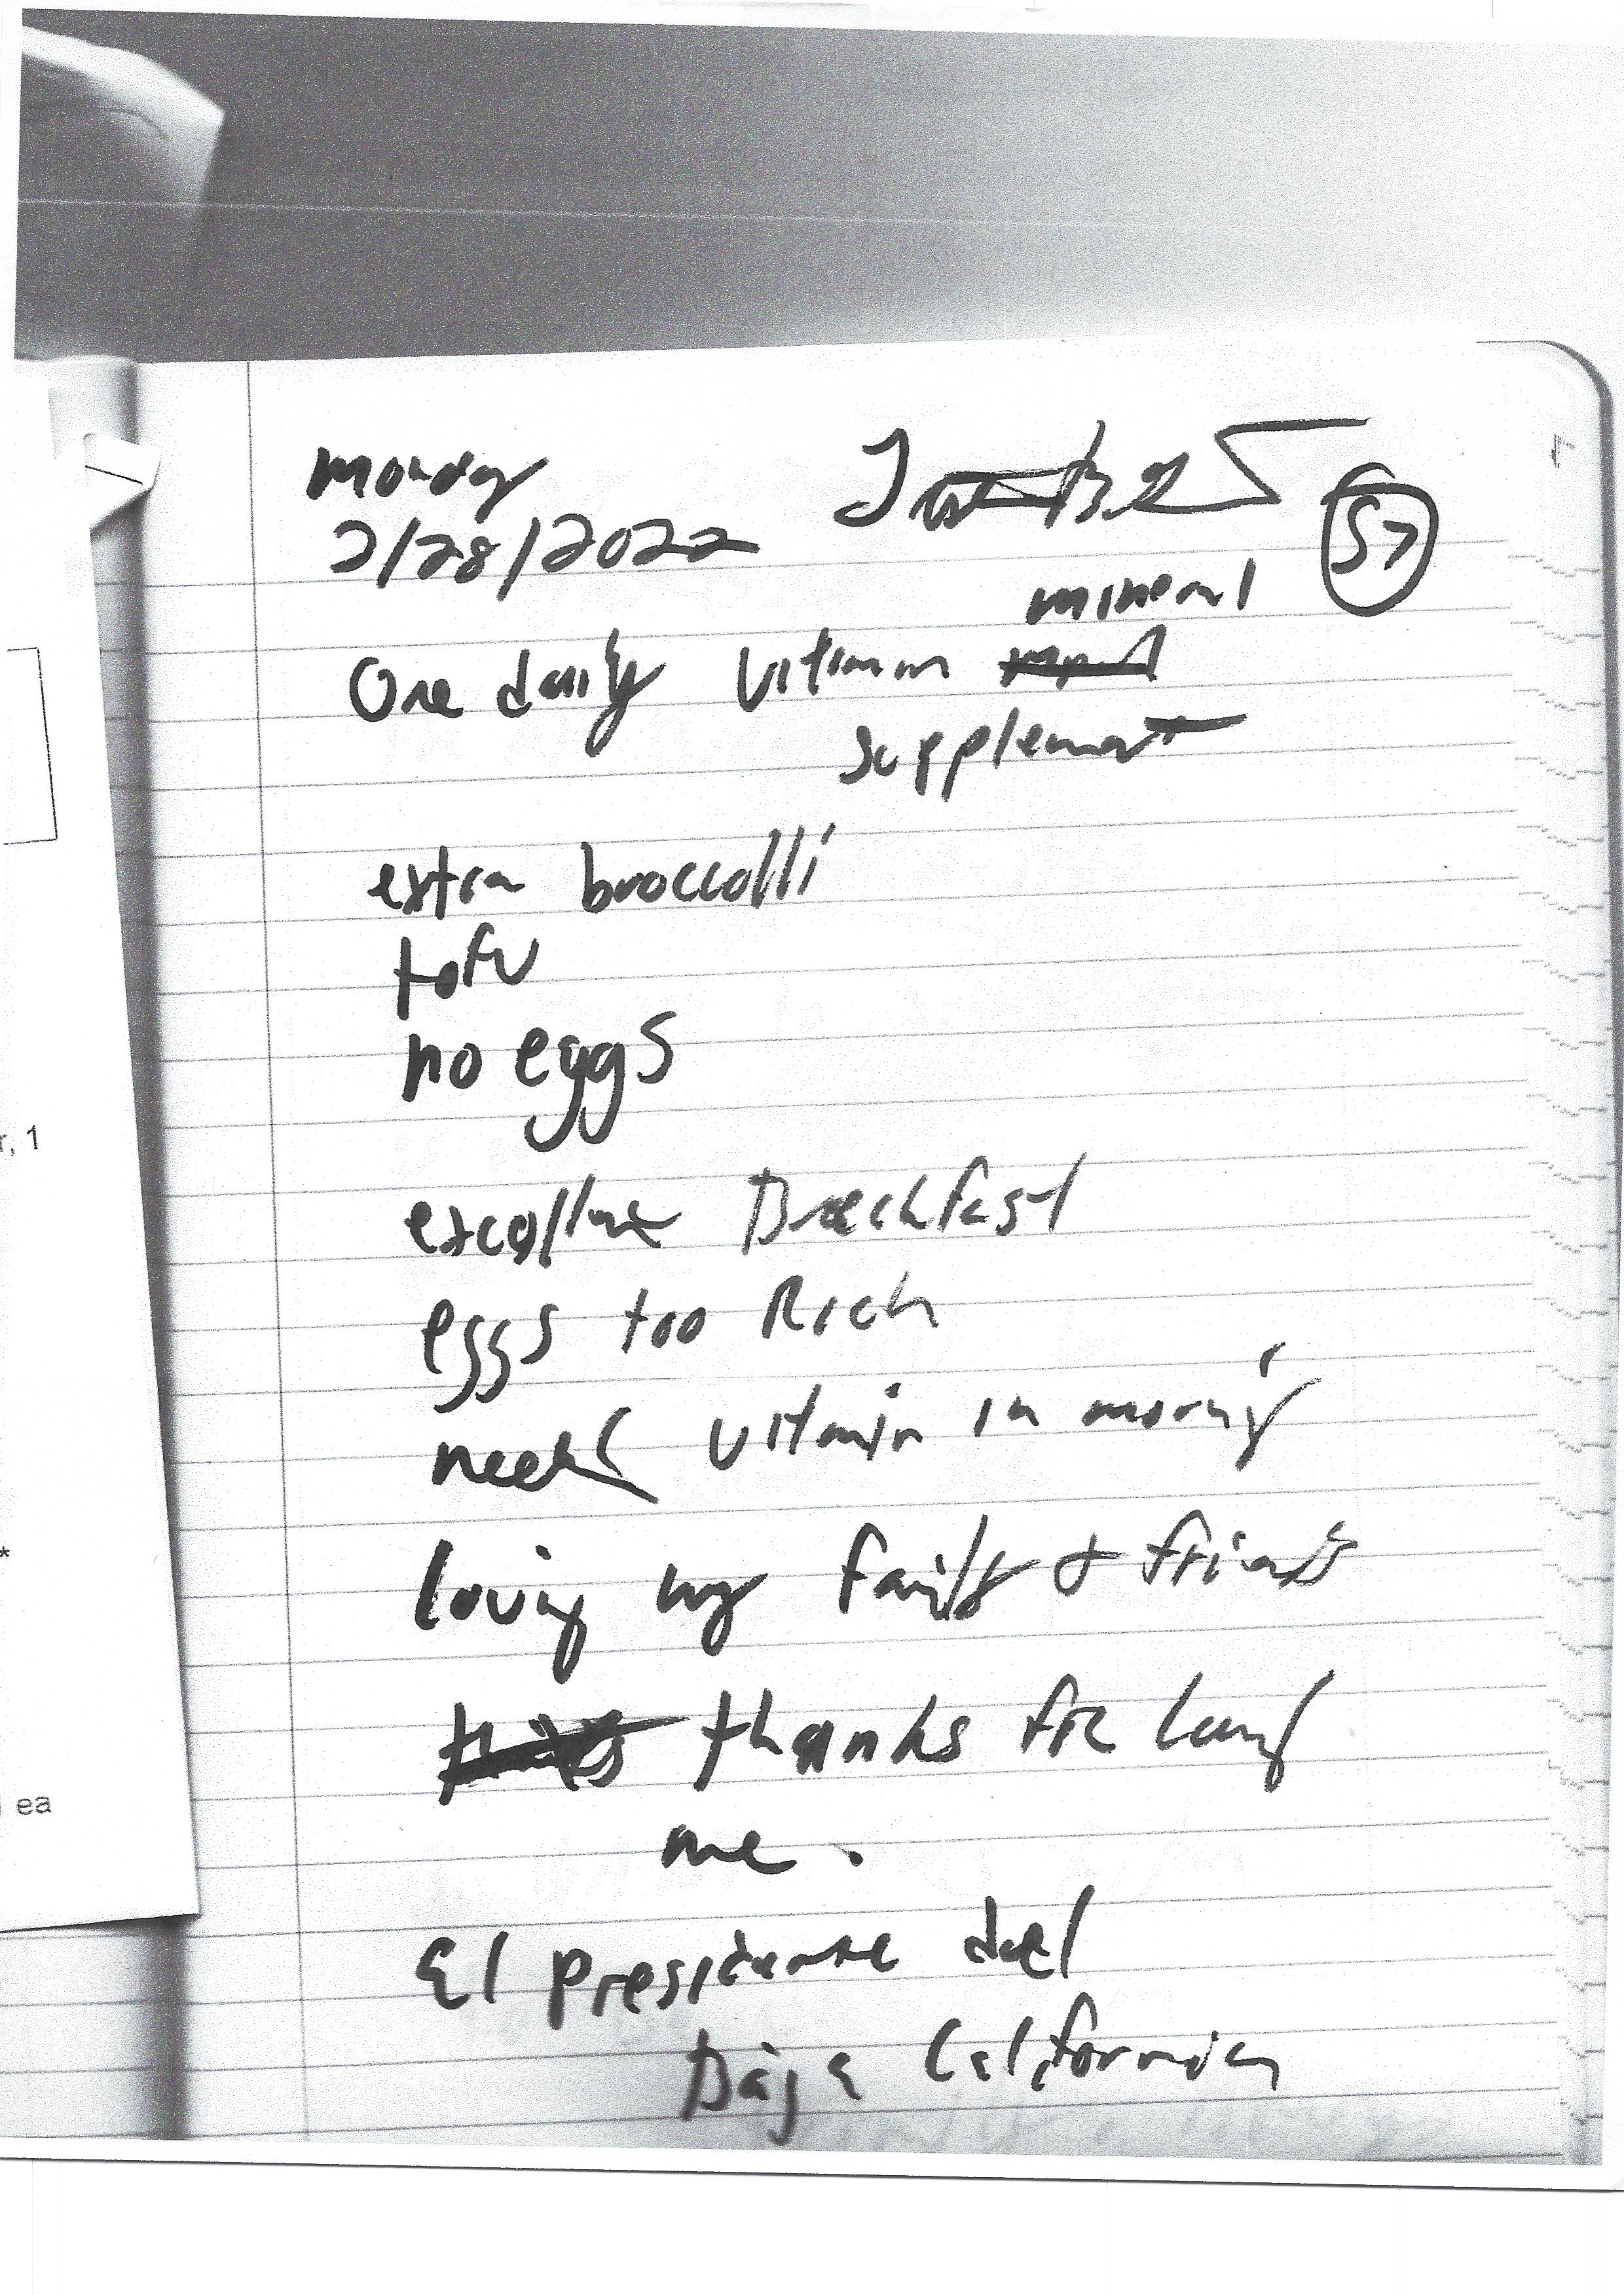 Monday
2/28/2022
57
mineral
One daily vitamin
supplement
extra broccolli
tofu
no eggs
Breckfast
eggs too Rich
need vitamin in morning
loving my family & friends
thanks for loving
me.
El presidente del
Baja California
r, 1
*
ea